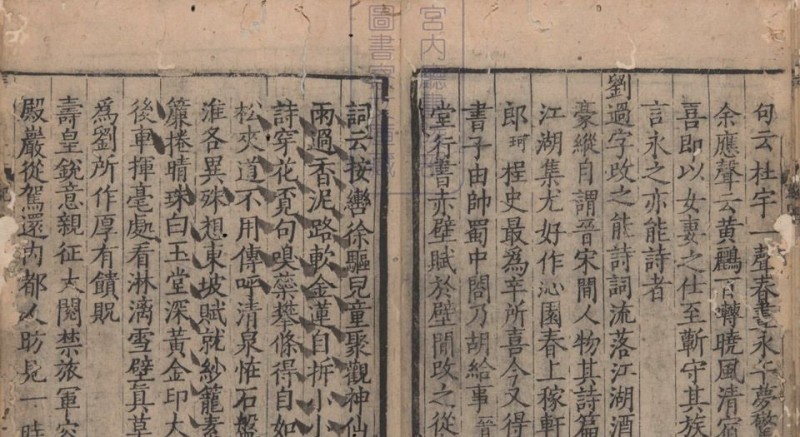 句云杜宇一聲春晝永午夢驚
余應聲云黃鸝百囀曉風清宿
喜即以女妻之仕至蘄守其族
言永之亦能詩者
劉過字改之能詩詞流落江湖酒
豪縱自謂晉宋間人物其詩篇
江湖集尤好作沁園春上稼軒
郎珂桯史最爲辛所喜今又得
書子由帥蜀中閤乃胡給事晉
堂行書赤壁賦於壁間改之從
詞云按轡徐驅兒童聚觀神仙
雨過香泥路軟金蓮自拆小小
詩穿花覔句嗅蘂攀條得自如
松夾道不用傳呼清泉恠石盤
淮各異殊想東坡賦就紗籠素
簾捲晴珠白玉堂深黃金印大
後車揮毫處看淋漓雪壁真草
爲劉所作厚有饋貺
壽皇銳意親征大閱禁旅軍容
殿巖從駕還内都人昉見一時
宮内廳
圖書